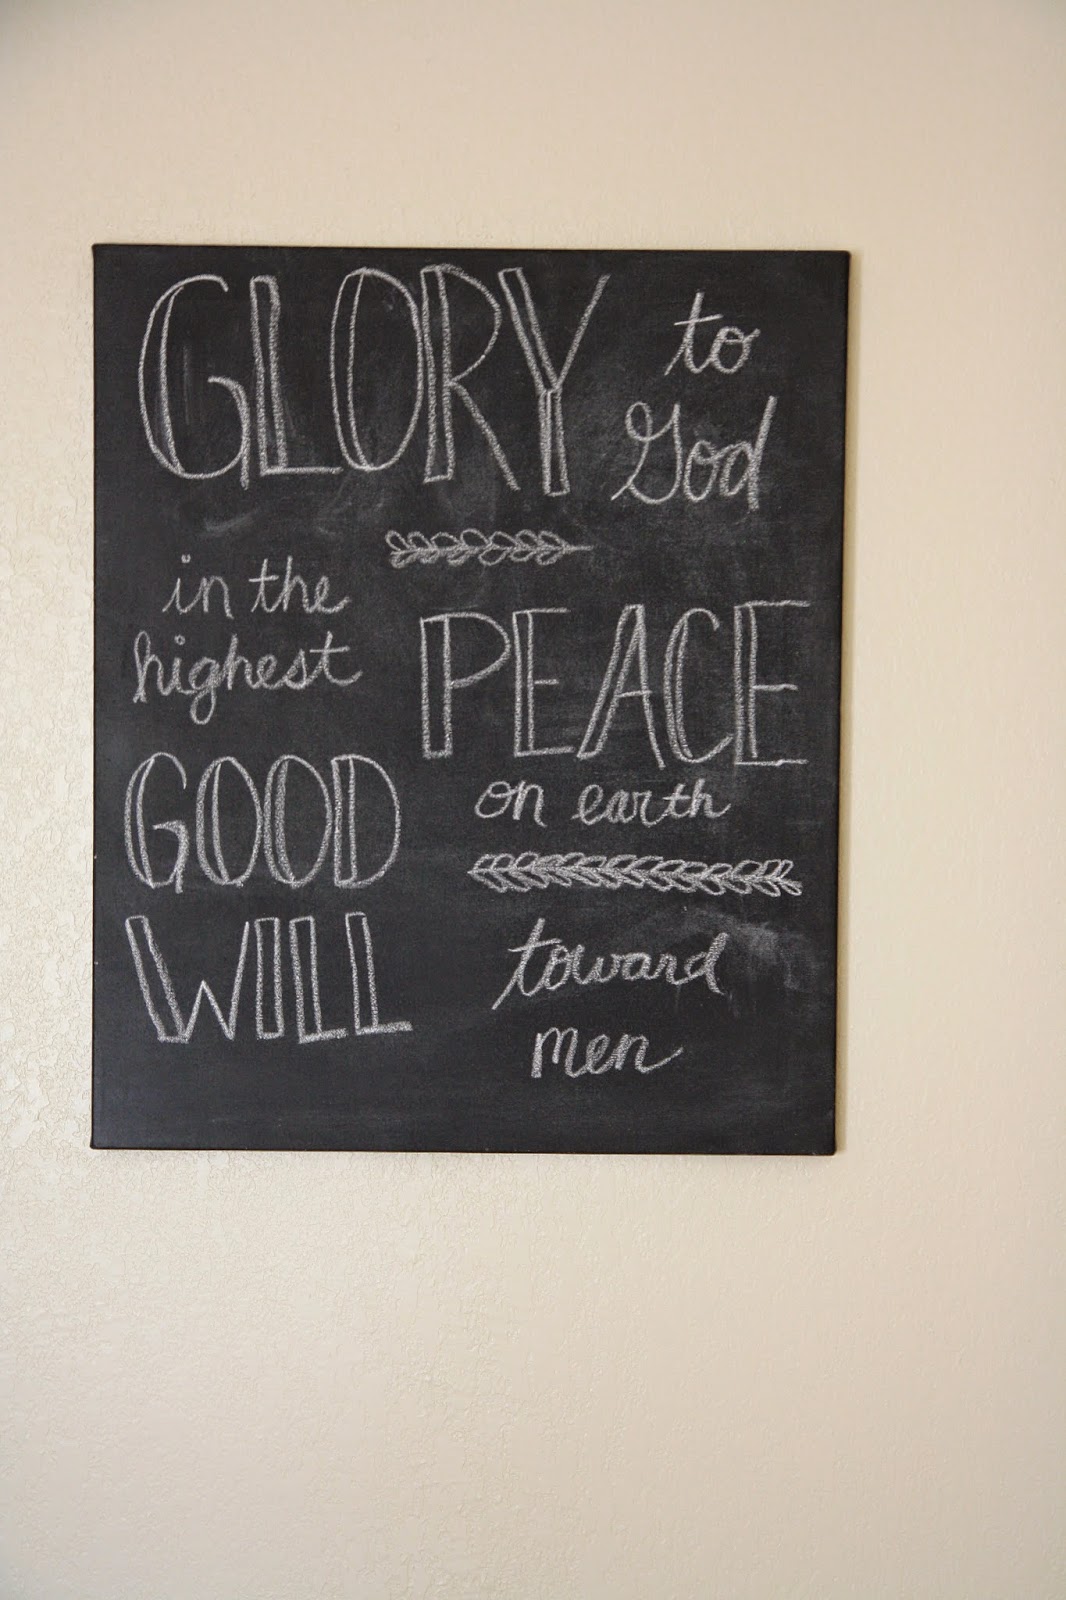 GLORY to
God
in the
highest
PEACE
on earth
GOOD
WILL
toward
men